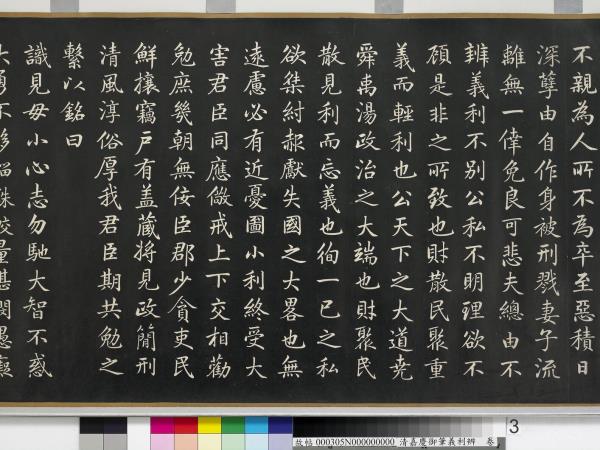 不親為人所不為卒至惡積日
深孽由自作身被刑戮妻子流
離無一倖免良可悲夫總由不
辨義利不別公私不明理欲不
顧是非之所致也財散民聚重
義而輕利也公天下之大道堯
舜禹湯政治之大端也財聚民
散見利而忘義也徇一己之私
欲桀紂赧獻失國之大畧也無
遠慮必有近憂圖小利終受大
害君臣同應儆戒上下交相勸
勉庶幾朝無佞臣郡少貪吏民
鮮攘竊戶有蓋藏將見政簡刑
清風淳俗厚我君臣期共勉之
繫以銘曰
識見毋小心志勿馳大智不惑
大勇不移錙銖較量甚閔愚
3
故帖 000305N000000000 清嘉慶御筆義利辨 卷